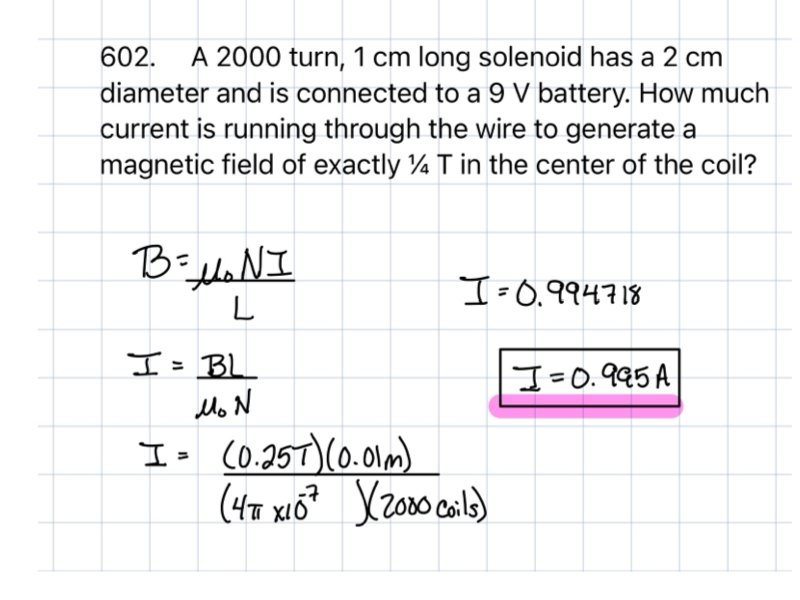 602. A 2000 turn, 1 cm long solenoid has a 2 cm
diameter and is connected to a 9 V battery. How much
current is running through the wire to generate a
magnetic field of exactly ¼ T in the center of the coil?
B = μ₀NI / L
I = BL / μ₀N
I = (0.25T)(0.01m) / (4π x10⁻⁷ )(2000 coils)
I = 0.994718
I = 0.995 A